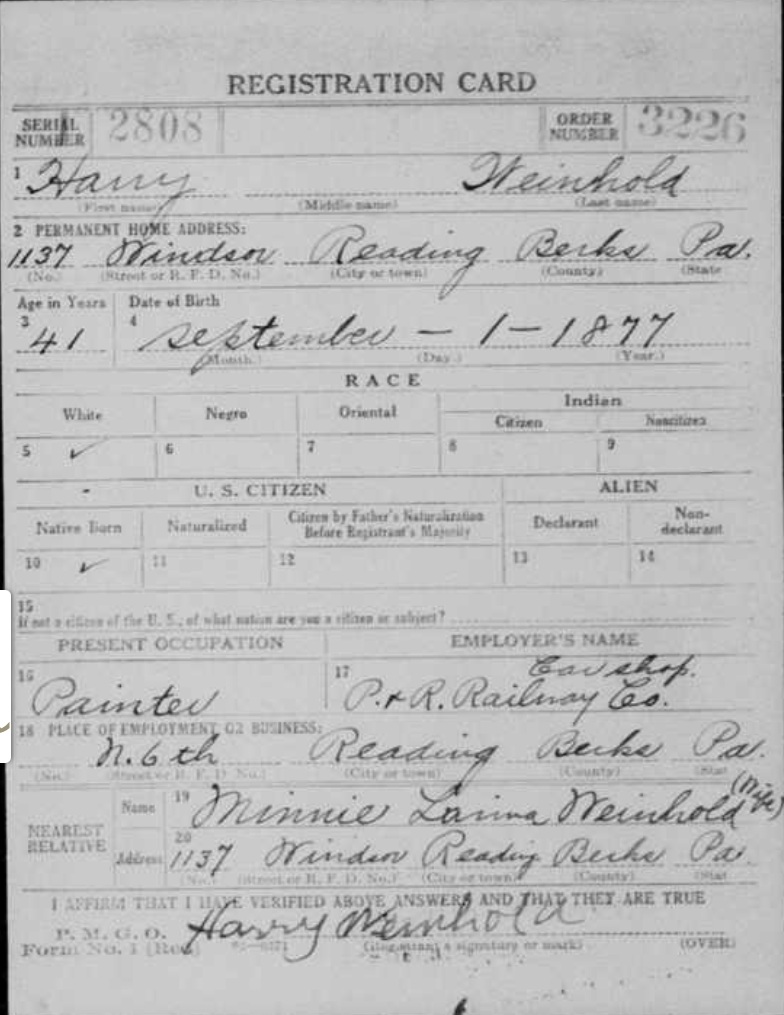 REGISTRATION CARD
SERIAL NUMBER 2808 ORDER NUMBER 3226
1 Harry Weinhold
(First name) (Middle name) (Last name)
2 PERMANENT HOME ADDRESS:
1137 Windsor Reading Berks Pa.
(No.) (Street or R. F. D. No.) (City or town) (County) (State
Age in Years Date of Birth
3 41 4 September - 1 - 1877
(Month.) (Day.) (Year.)
RACE
White Negro Oriental Indian
Citizen Noncitizen
5 ✓ 6 7 8 9
U. S. CITIZEN ALIEN
Native Born Naturalized Citizen by Father's Naturalization Before Registrant's Majority Declarant Non-declarant
10 ✓ 11 12 13 14
15
If not a citizen of the U. S., of what nation are you a citizen or subject?
PRESENT OCCUPATION EMPLOYER'S NAME
16 Painter 17 Car shop.
P. & R. Railway Co.
18 PLACE OF EMPLOYMENT OR BUSINESS:
N. 6th Reading Berks Pa.
(No.) (Street or R. F. D. No.) (City or town) (County) (State
NEAREST RELATIVE Name 19 Minnie Weinhold (Wife)
Address 20 1137 Windsor Reading Berks Pa.
(No.) (Street or R. F. D. No.) (City or town) (County) (State
I AFFIRM THAT I HAVE VERIFIED ABOVE ANSWERS AND THAT THEY ARE TRUE
P. M. G. O. Harry Weinhold
Form No. 1 (Red) (Registrant's signature or mark) (OVER)